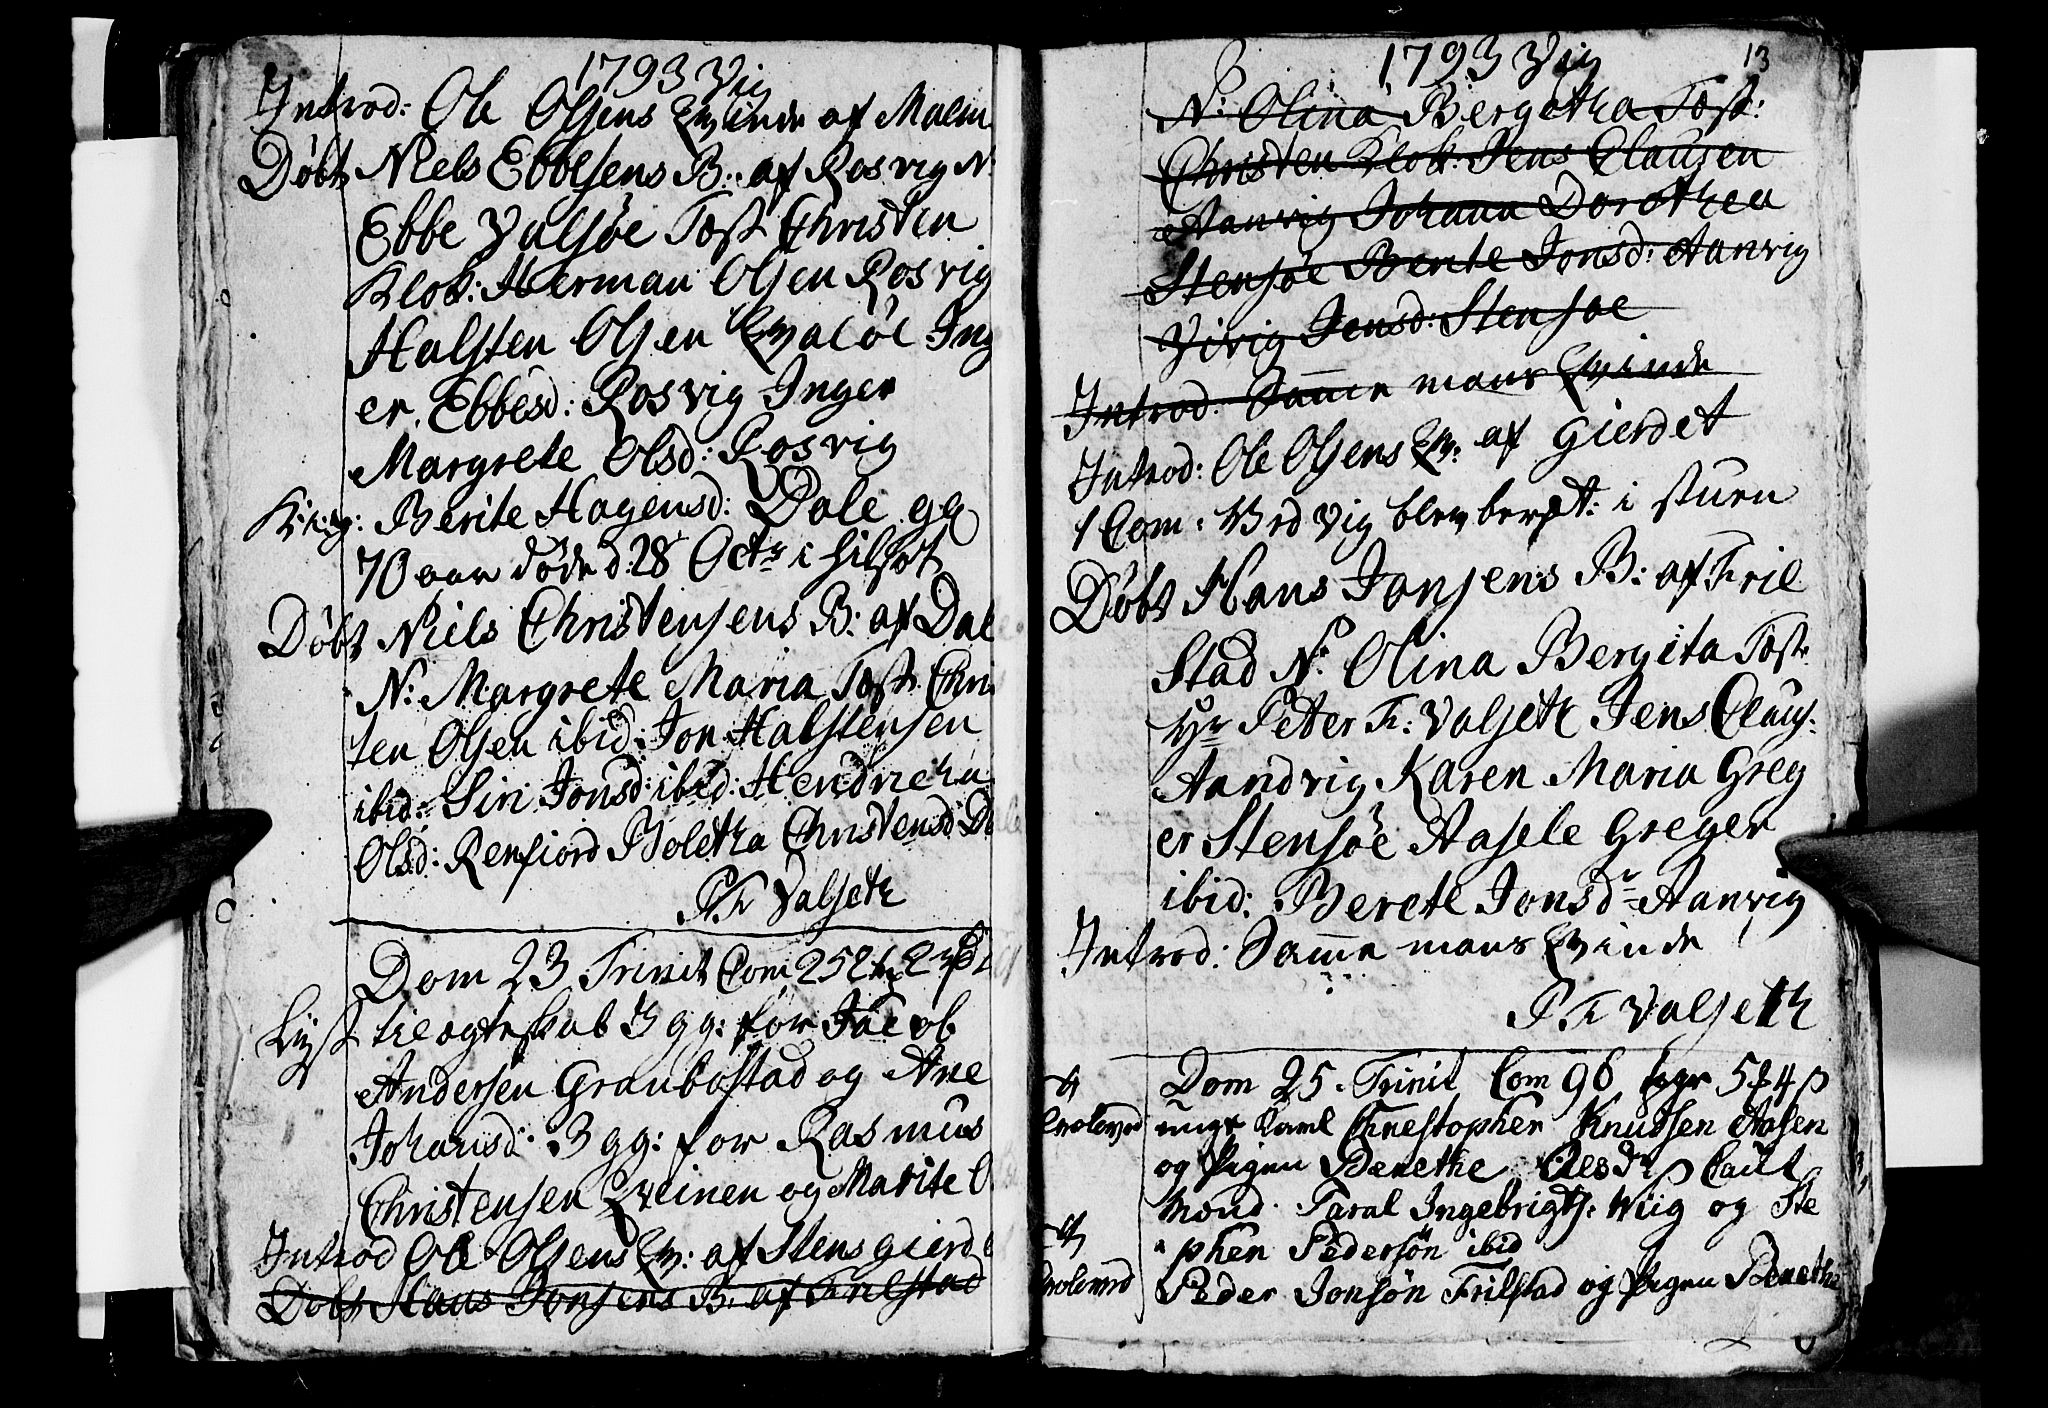 1793 Vig
Introd: Ole Olsens Qvinde af Malm
Døbt Niels Ebbesens B: af Rosvig N:
Ebbe Valsøe Test Christen
Klok: Herman Olsen Rosvig
Halsten Olsen Qvaløe Ing
er Ebbesd: Rosvig Inger
Margrete Olsd: Rosvig
Berite Hagensd: Dale gl
70 aar døde d: 28 Octr i
Døbt Niels Christensens B: af Dal
N: Margrete Maria Test: Chris
ten Olsen ibid: Jon Halstensen
ibid: Siri Jonsd: ibid: Hendricha
Olsd: Renfiord Boletha Christensd: D
P Fr Valseth
Dom 23 Trinit Com 25
Lyst til ægteskab 3 gg: for Jacob
Andersen Graubostad og Ane
Johansd: 3 gg: for Rasmus
Christensen Qveinen og Marite O
Introd Ole Olsens Qv: af Stensgierd
Døbt Hans Jonsens B: af Frilstad
13
1793 Vig
N: Olina Bergitha Test:
Christen Klok: Jens Clausen
Aanvig Johana Dorothea
Stensøe Berite Jonsd: Aanvig
Jensd: Stensøe
Introd: Samme mans Qvinde
Introd: Ole Olsens Qv: af Gierdet
1 Com: Ved Vig blev beret: i stuen
Døbt Hans Jonsens B: af Fril
stad N: Olina Bergita Test:
Hr Peter Fr: Valseth Jens Claus:
Aandvig Karen Maria Greg
er Stensøe Aasele Greger
ibid: Berete Jonsdr Aanvig
Introd: Samme mans Qvinde
P Fr Valseth
Dom 25. Trinit Com 96
Troloved ungt Karl Christopher Knudsen Aasen
og Pigen Berethe Olesdr Caut
Mond. Taral Ingebrigts: Wiig og Ste
phen Pedersøn ibid
Trolovd Peder Jonsøn Frilstad og Pigen Berethe